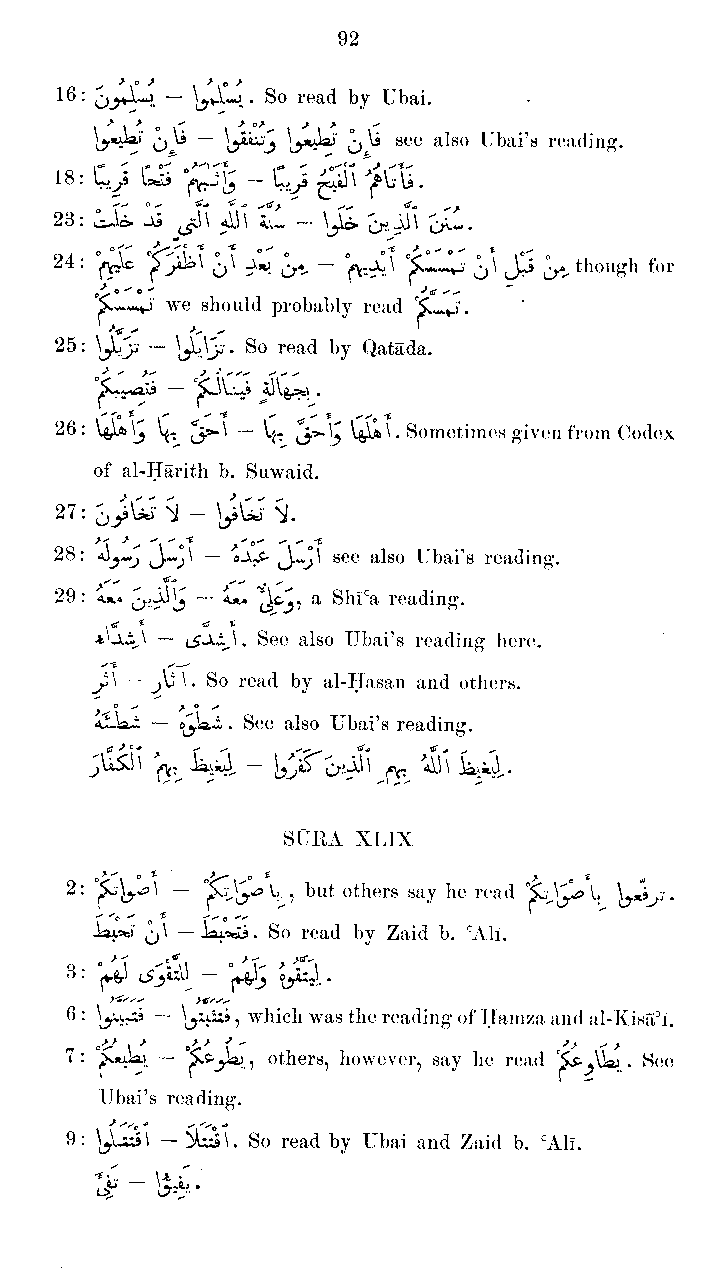 92
16: يُسْلِمُونَ – يُسْلِمُوا. So read by Ubai.
فَإِنْ تُطِيعُوا – فَإِنْ تُطِيعُوا وَتُنْفِقُوا see also Ubai's reading.
18: وَأَثَابَهُمْ فَتْحًا قَرِيبًا – فَأَتَاهُمُ ٱلْفَتْحُ قَرِيبًا.
23: سُنَّةَ ٱللّٰهِ ٱلَّتِي قَدْ خَلَتْ – سُنَنَ ٱلَّذِينَ خَلَوْا.
24: مِنْ بَعْدِ أَنْ أَظْفَرَكُمْ عَلَيْهِمْ – مِنْ قَبْلِ أَنْ تَمْسَسْكُمْ أَيْدِيهِمْ though for
تَمْسَسْكُمْ we should probably read تَمَسَّكُمْ.
25: تَزَيَّلُوا – تَزَايَلُوا. So read by Qatāda.
فَتُصِيبَكُمْ – بِجَهَالَةٍ فَيَنَالَكُمْ.
26: أَحَقَّ بِهَا وَأَهْلَهَا – أَهْلَهَا وَأَحَقَّ بِهَا. Sometimes given from Codex
of al-Ḥārith b. Suwaid.
27: لَا تَخَافُونَ – لَا تَخَافُوا.
28: أَرْسَلَ رَسُولَهُ – أَرْسَلَ عَبْدَهُ see also Ubai's reading.
29: وَٱلَّذِينَ مَعَهُ – وَعَلِيٌّ مَعَهُ, a Shīʿa reading.
أَشِدَّاءُ – أَشِدَّى. See also Ubai's reading here.
أَثَرِ – آثَارِ. So read by al-Ḥasan and others.
شَطْئَهُ – شَطْوَهُ. See also Ubai's reading.
لِيَغِيظَ بِهِمُ ٱلْكُفَّارَ – لِيَغِيظَ ٱللّٰهُ بِهِمِ ٱلَّذِينَ كَفَرُوا.
SŪRA XLIX
2: أَصْوَاتَكُمْ – بِأَصْوَاتِكُمْ, but others say he read ترفّعوا بِأَصْوَاتِكُمْ.
أَنْ تَحْبَطَ – فَتَحْبَطَ. So read by Zaid b. ʿAlī.
3: لِلتَّقْوَى لَهُمْ – لِيَتَّقُوهُ وَلَهُمْ.
6: فَتَبَيَّنُوا – فَتَثَبَّتُوا, which was the reading of Ḥamza and al-Kisāʾī.
7: يُطِيعُكُمْ – يَطُوعُكُمْ, others, however, say he read يُطَاوِعُكُمْ. See
Ubai's reading.
9: ٱقْتَتَلُوا – ٱقْتَتَلَا. So read by Ubai and Zaid b. ʿAlī.
تَفِئَْ – يَفِيئُوا.